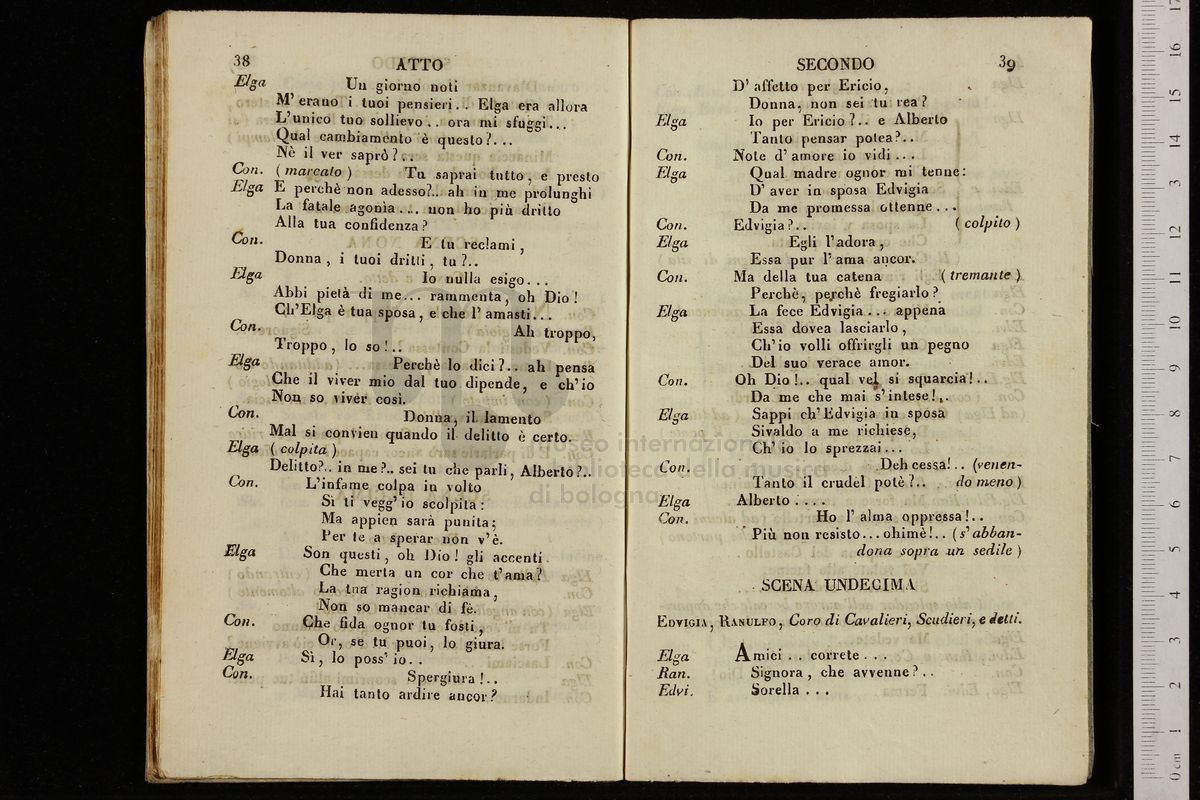 38 ATTO
Elga Un giorno noti
M' erano i tuoi pensieri.. Elga era allora
L'unico tuo sollievo.. ora mi sfuggi...
Qual cambiamento è questo?...
Nè il ver saprò?..
Con. (marcato) Tu saprai tutto, e presto
Elga E perchè non adesso?.. ah in me prolunghi
La fatale agonìa.... non ho più dritto
Alla tua confidenza?
Con. E tu reclami,
Donna, i tuoi dritti, tu?..
Elga Io nulla esigo...
Abbi pietà di me... rammenta, oh Dio!
Ch'Elga è tua sposa, e che l' amasti...
Con. Ah troppo,
Troppo, lo so!..
Elga Perchè lo dici?.. ah pensa
Che il viver mio dal tuo dipende, e ch'io
Non so viver così.
Con. Donna, il lamento
Mal si convien quando il delitto è certo.
Elga (colpita)
Delitto?.. in me?.. sei tu che parli, Alberto?..
Con. L'infame colpa in volto
Si ti vegg' io scolpita:
Ma appien sarà punita;
Per te a sperar non v'è.
Elga Son questi, oh Dio! gli accenti
Che merta un cor che t'ama?
La tua ragion richiama,
Non so mancar di fè.
Con. Che fida ognor tu fosti,
Or, se tu puoi, lo giura.
Elga Sì, lo poss' io..
Con. Spergiura!..
Hai tanto ardire ancor?
SECONDO 39
D' affetto per Ericio,
Donna, non sei tu rea?
Elga Io per Ericio?.. e Alberto
Tanto pensar potea?..
Con. Note d' amore io vidi...
Elga Qual madre ognor mi tenne:
D' aver in sposa Edvigia
Da me promessa ottenne...
Con. Edvigia?.. (colpito)
Elga Egli l'adora,
Essa pur l' ama ancor.
Con. Ma della tua catena (tremante)
Perchè, perchè fregiarlo?
Elga La fece Edvigia... appena
Essa dovea lasciarlo,
Ch'io volli offrirgli un pegno
Del suo verace amor.
Con. Oh Dio!.. qual vel si squarcia!..
Da me che mai s'intese!..
Elga Sappi ch'Edvigia in sposa
Sivaldo a me richiese,
Ch' io lo sprezzai...
Con. Deh cessa!.. (venen-
Tanto il crudel potè?.. do meno)
Elga Alberto....
Con. Ho l' alma oppressa!..
Più non resisto...ohimè!.. (s'abban-
dona sopra un sedile)
SCENA UNDECIMA
EDVIGIA, RANULFO, Coro di Cavalieri, Scudieri, e detti.
Elga Amici.. correte...
Ran. Signora, che avvenne?..
Edvi. Sorella...
museo internazionale
biblioteca della musica
di bologna